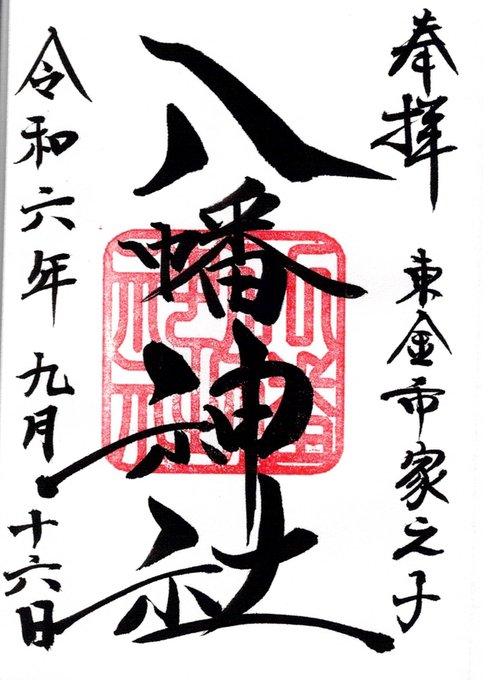 奉拝 東金市家之子
八幡神社
令和六年九月十六日